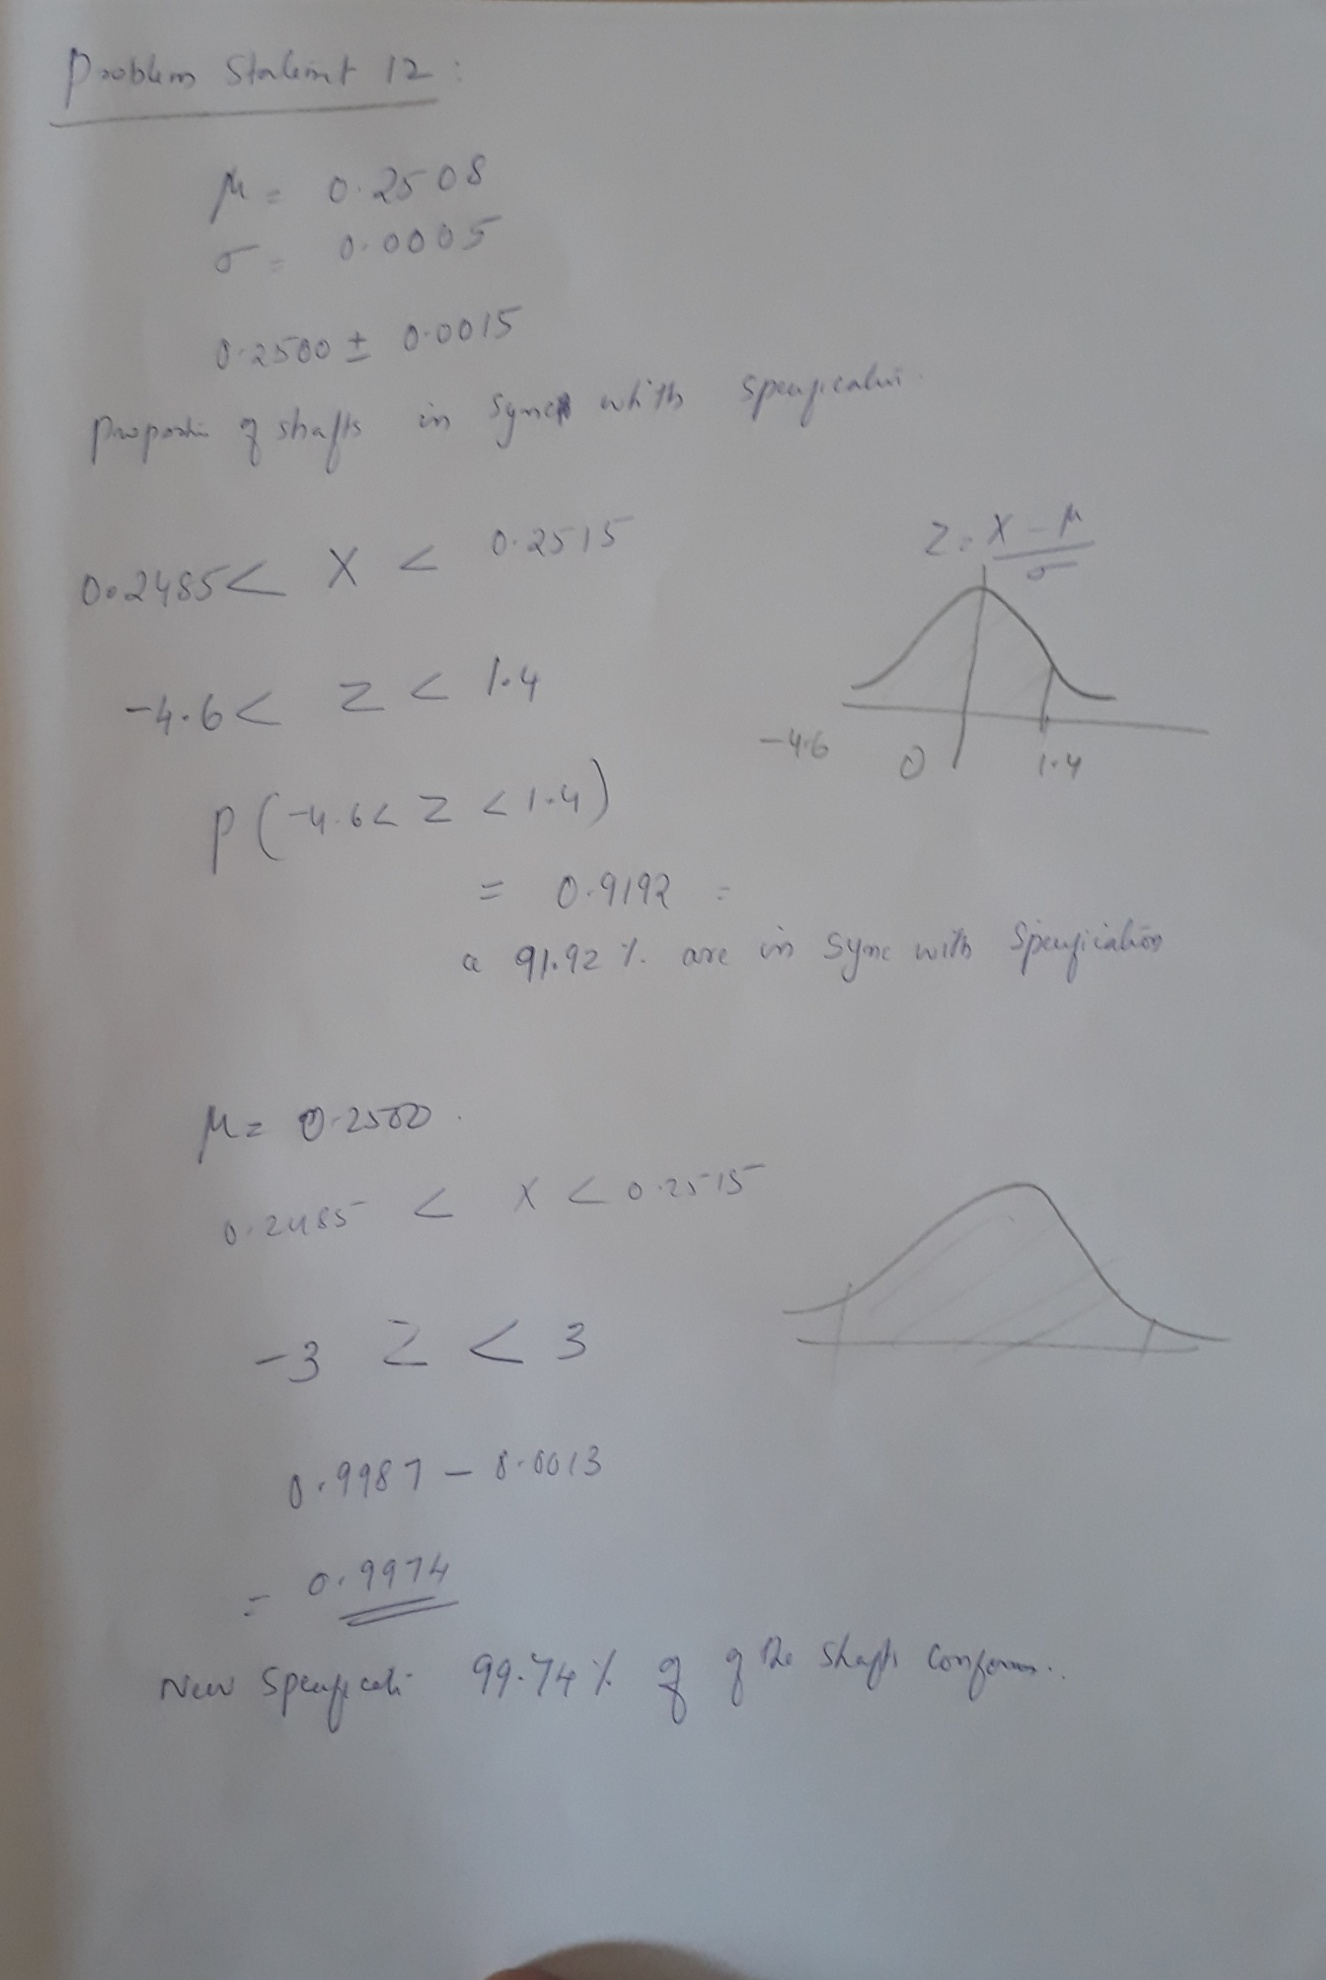 Problem Statemnt 12 :
μ = 0.2508
σ = 0.0005
0.2500 ± 0.0015
Proportin of shafts in sync with specification
0.2485 < X < 0.2515
Z = X - μ / σ
-4.6 < Z < 1.4
-4.6 0 1.4
P(-4.6 < Z < 1.4)
= 0.9192 =
91.92 % are in sync with Specification
μ = 0.2500 .
0.2485 < X < 0.2515
-3 Z < 3
0.9987 - 0.0013
= 0.9974
New Specificati 99.74 % of of the shafts conform..